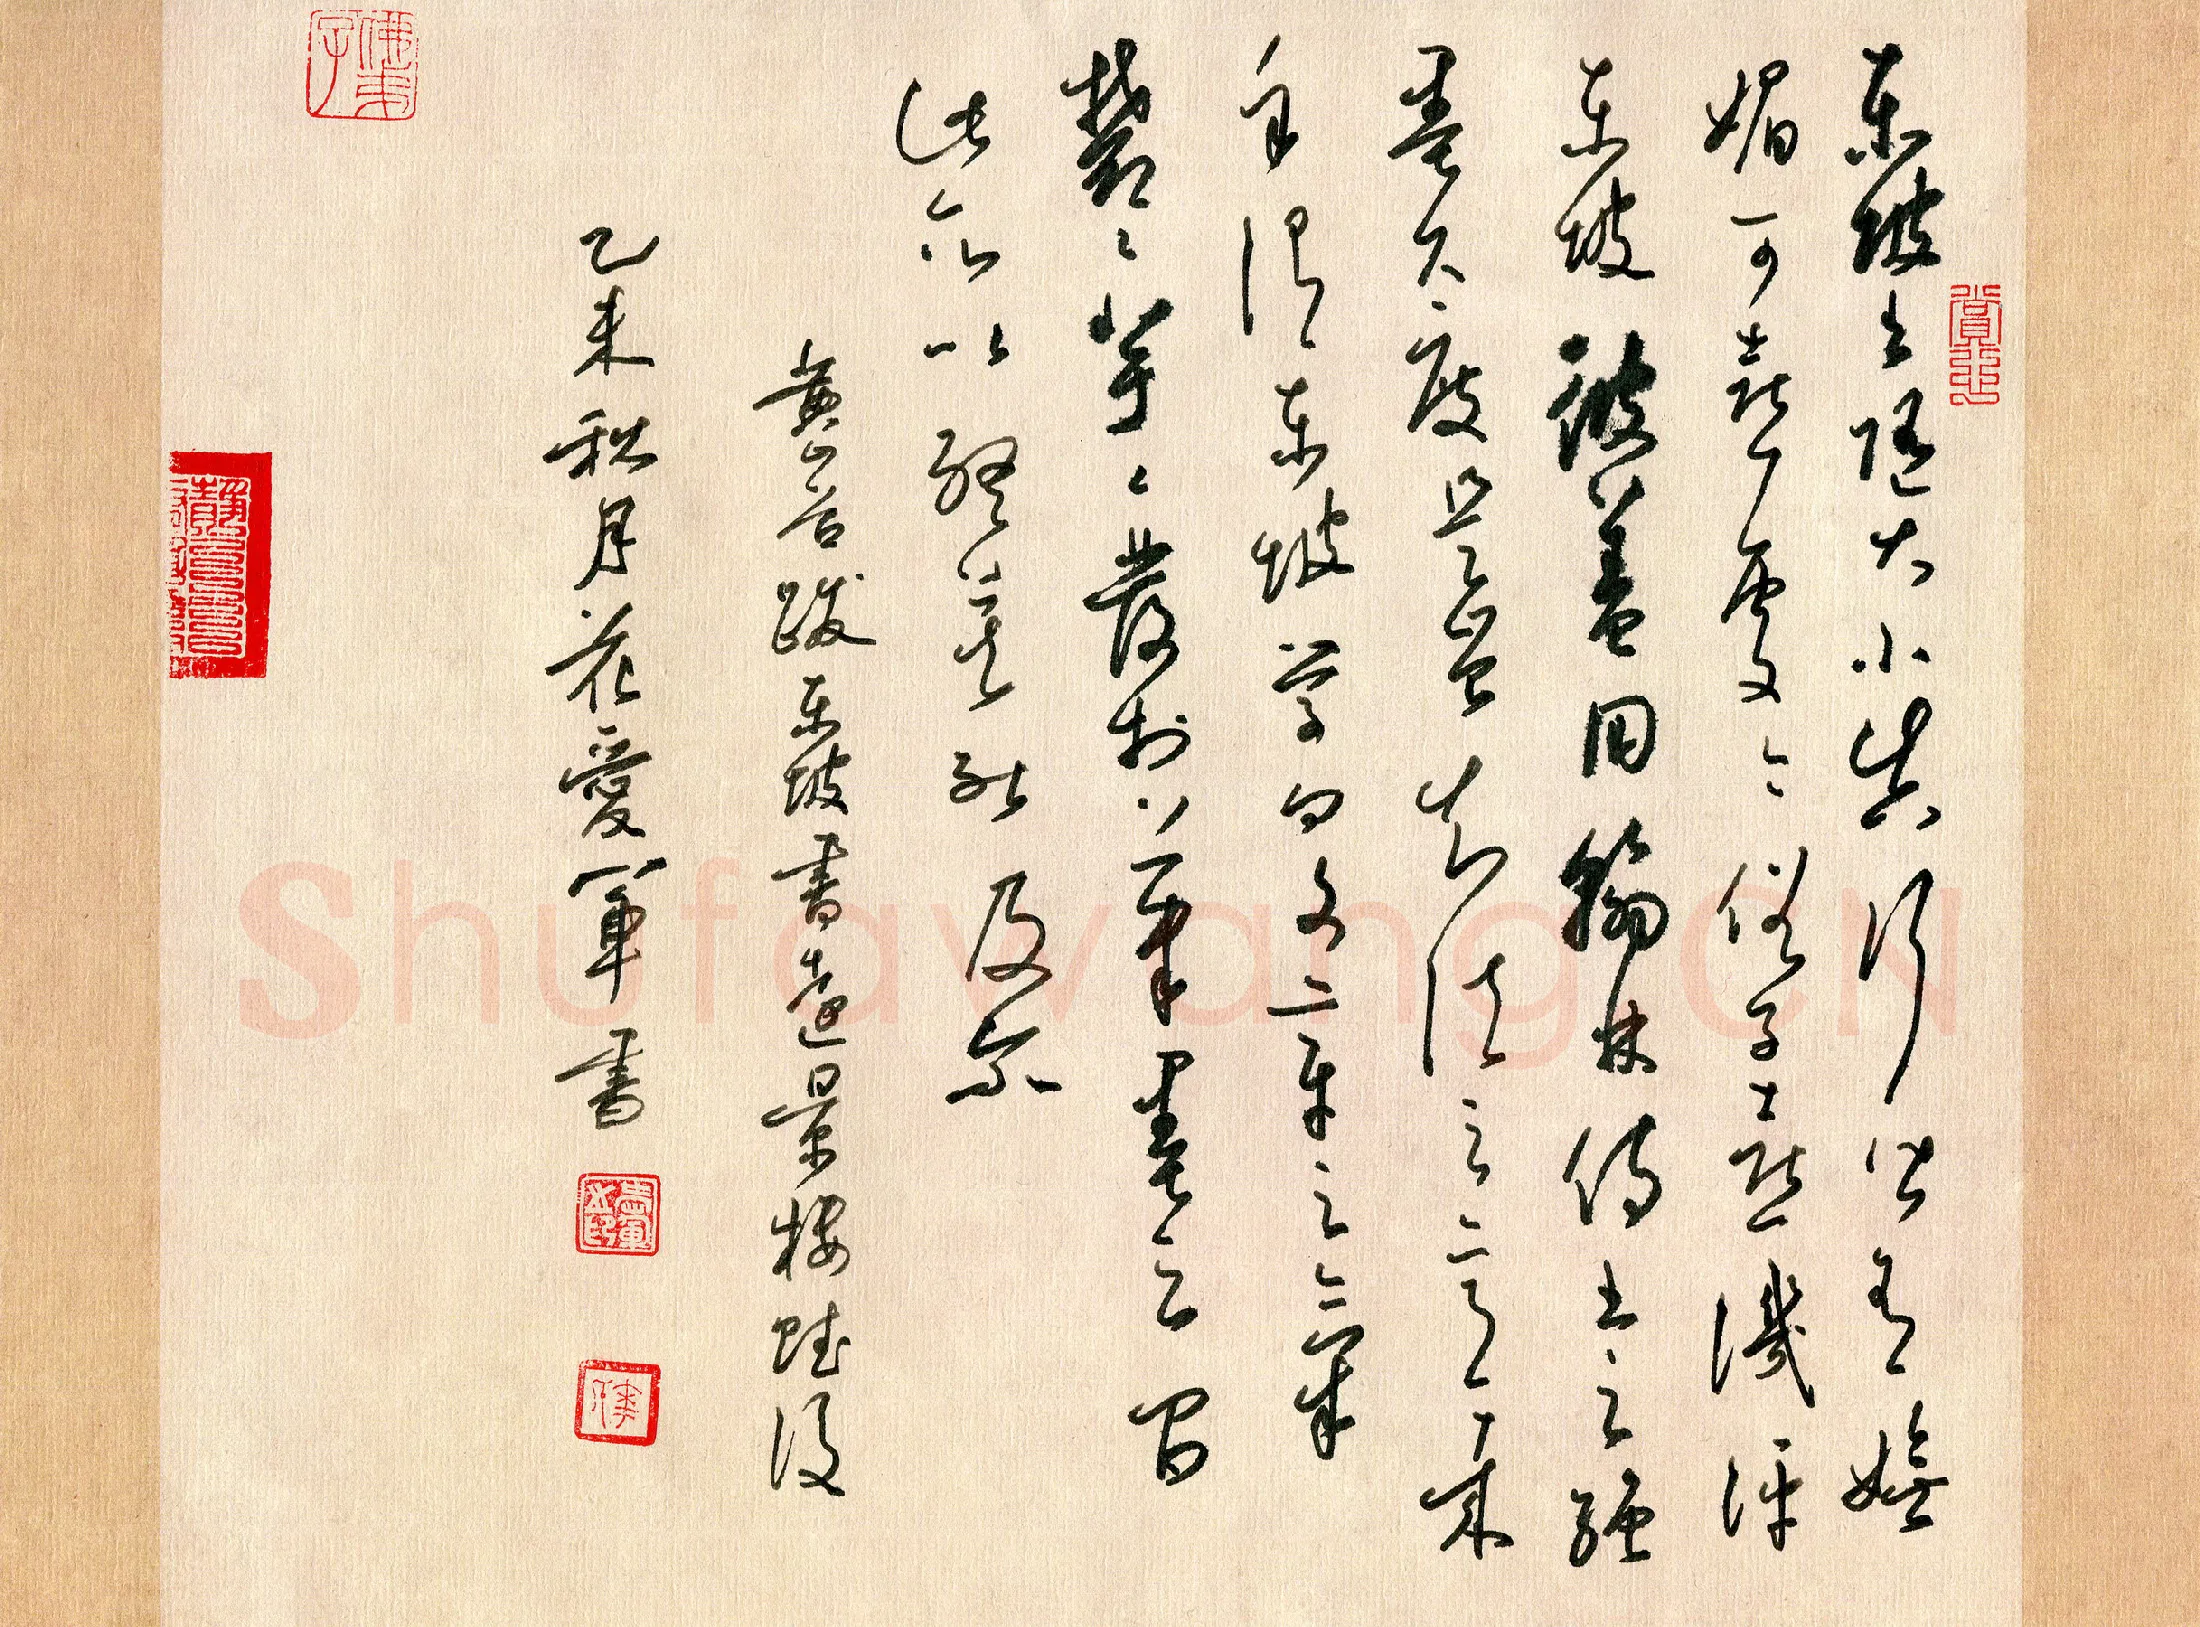 東坡書隨大小真行皆有嫵
媚可喜處今俗子喜譏評
東坡彼蓋用翰林侍書之繩
墨尺度是豈知法之意哉
余謂東坡學問文章之氣
鬱〻芊〻發於筆墨之間
此所以終莫能及尔
黃山谷跋東坡書遠景樓賦後
乙未秋月花愛軍書
ShufawangCN